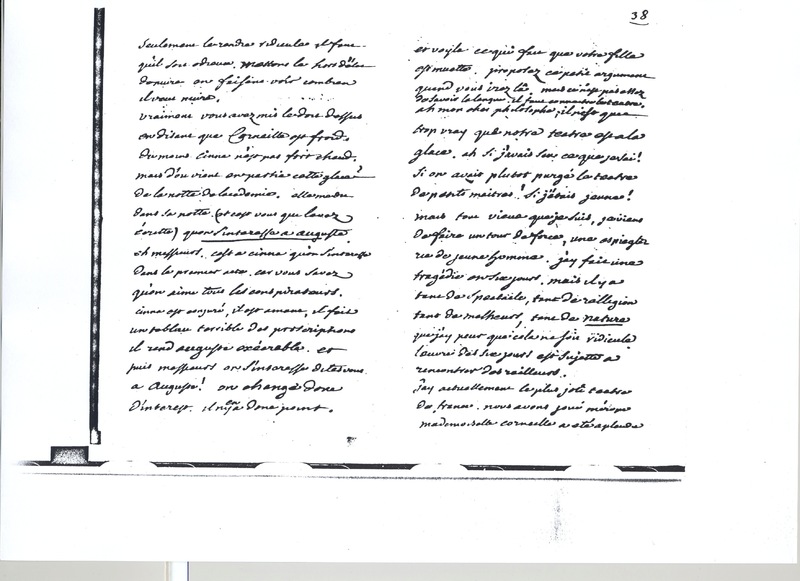 38
seulement le rendre ridicule il faut
quil soit odieux. mettons le hors d'etat
de nuire en faisant voir combien
il veut nuire.
vraiment vous avez mis le doit dessus
en disant que Corneille est froid.
du moins cinna n'est pas fort chaud.
mais d'ou vient en partie cette glace?
de la notte de lacademie. elle me dit
dans sa notte (et c'est vous que lavez
écritte) quon s'interesse a auguste
eh messieurs, c'est a cinna qu'on s'interesse
dans le premier acte. car vous savez
qu'on aime tous les conspirateurs.
cinna est conjuré, il est amant, il fait
un tableau terrible des proscriptions
il rend auguste exécrable. et
puis messieurs on s'interesse dites vous
a Auguste! on change donc
d'interest. il n'y en a donc point.
et voyla ce qui fait que votre fille
est muette. proposez ce petit argument
quand vous irez là. mais ce n'est pas assez
de savoir la langue, il faut connaitre le teatre.
ah mon cher philosophe, il n'est que
trop vray que notre teatre est a la
glace. ah si j'avais seu ce que je sai!
si on avait plutot purgé le teatre
de petits maitres! si j'étais jeune!
mais tout vieux que je suis, je viens
de faire un tour de force, une espiegle
rie de jeune homme. j'ay fait une
tragédie en six jours. mais il y a
tant de spectacle, tant de relligion
tant de malheurs, tant de nature
que j'ay peur que cela ne soit ridicule
l'œuvre des six jours est sujette a
rencontrer des railleurs.
j'ay actuellement le plus joli teatre
de france. nous avons joué mérope
mademoiselle corneille a été aplaudie